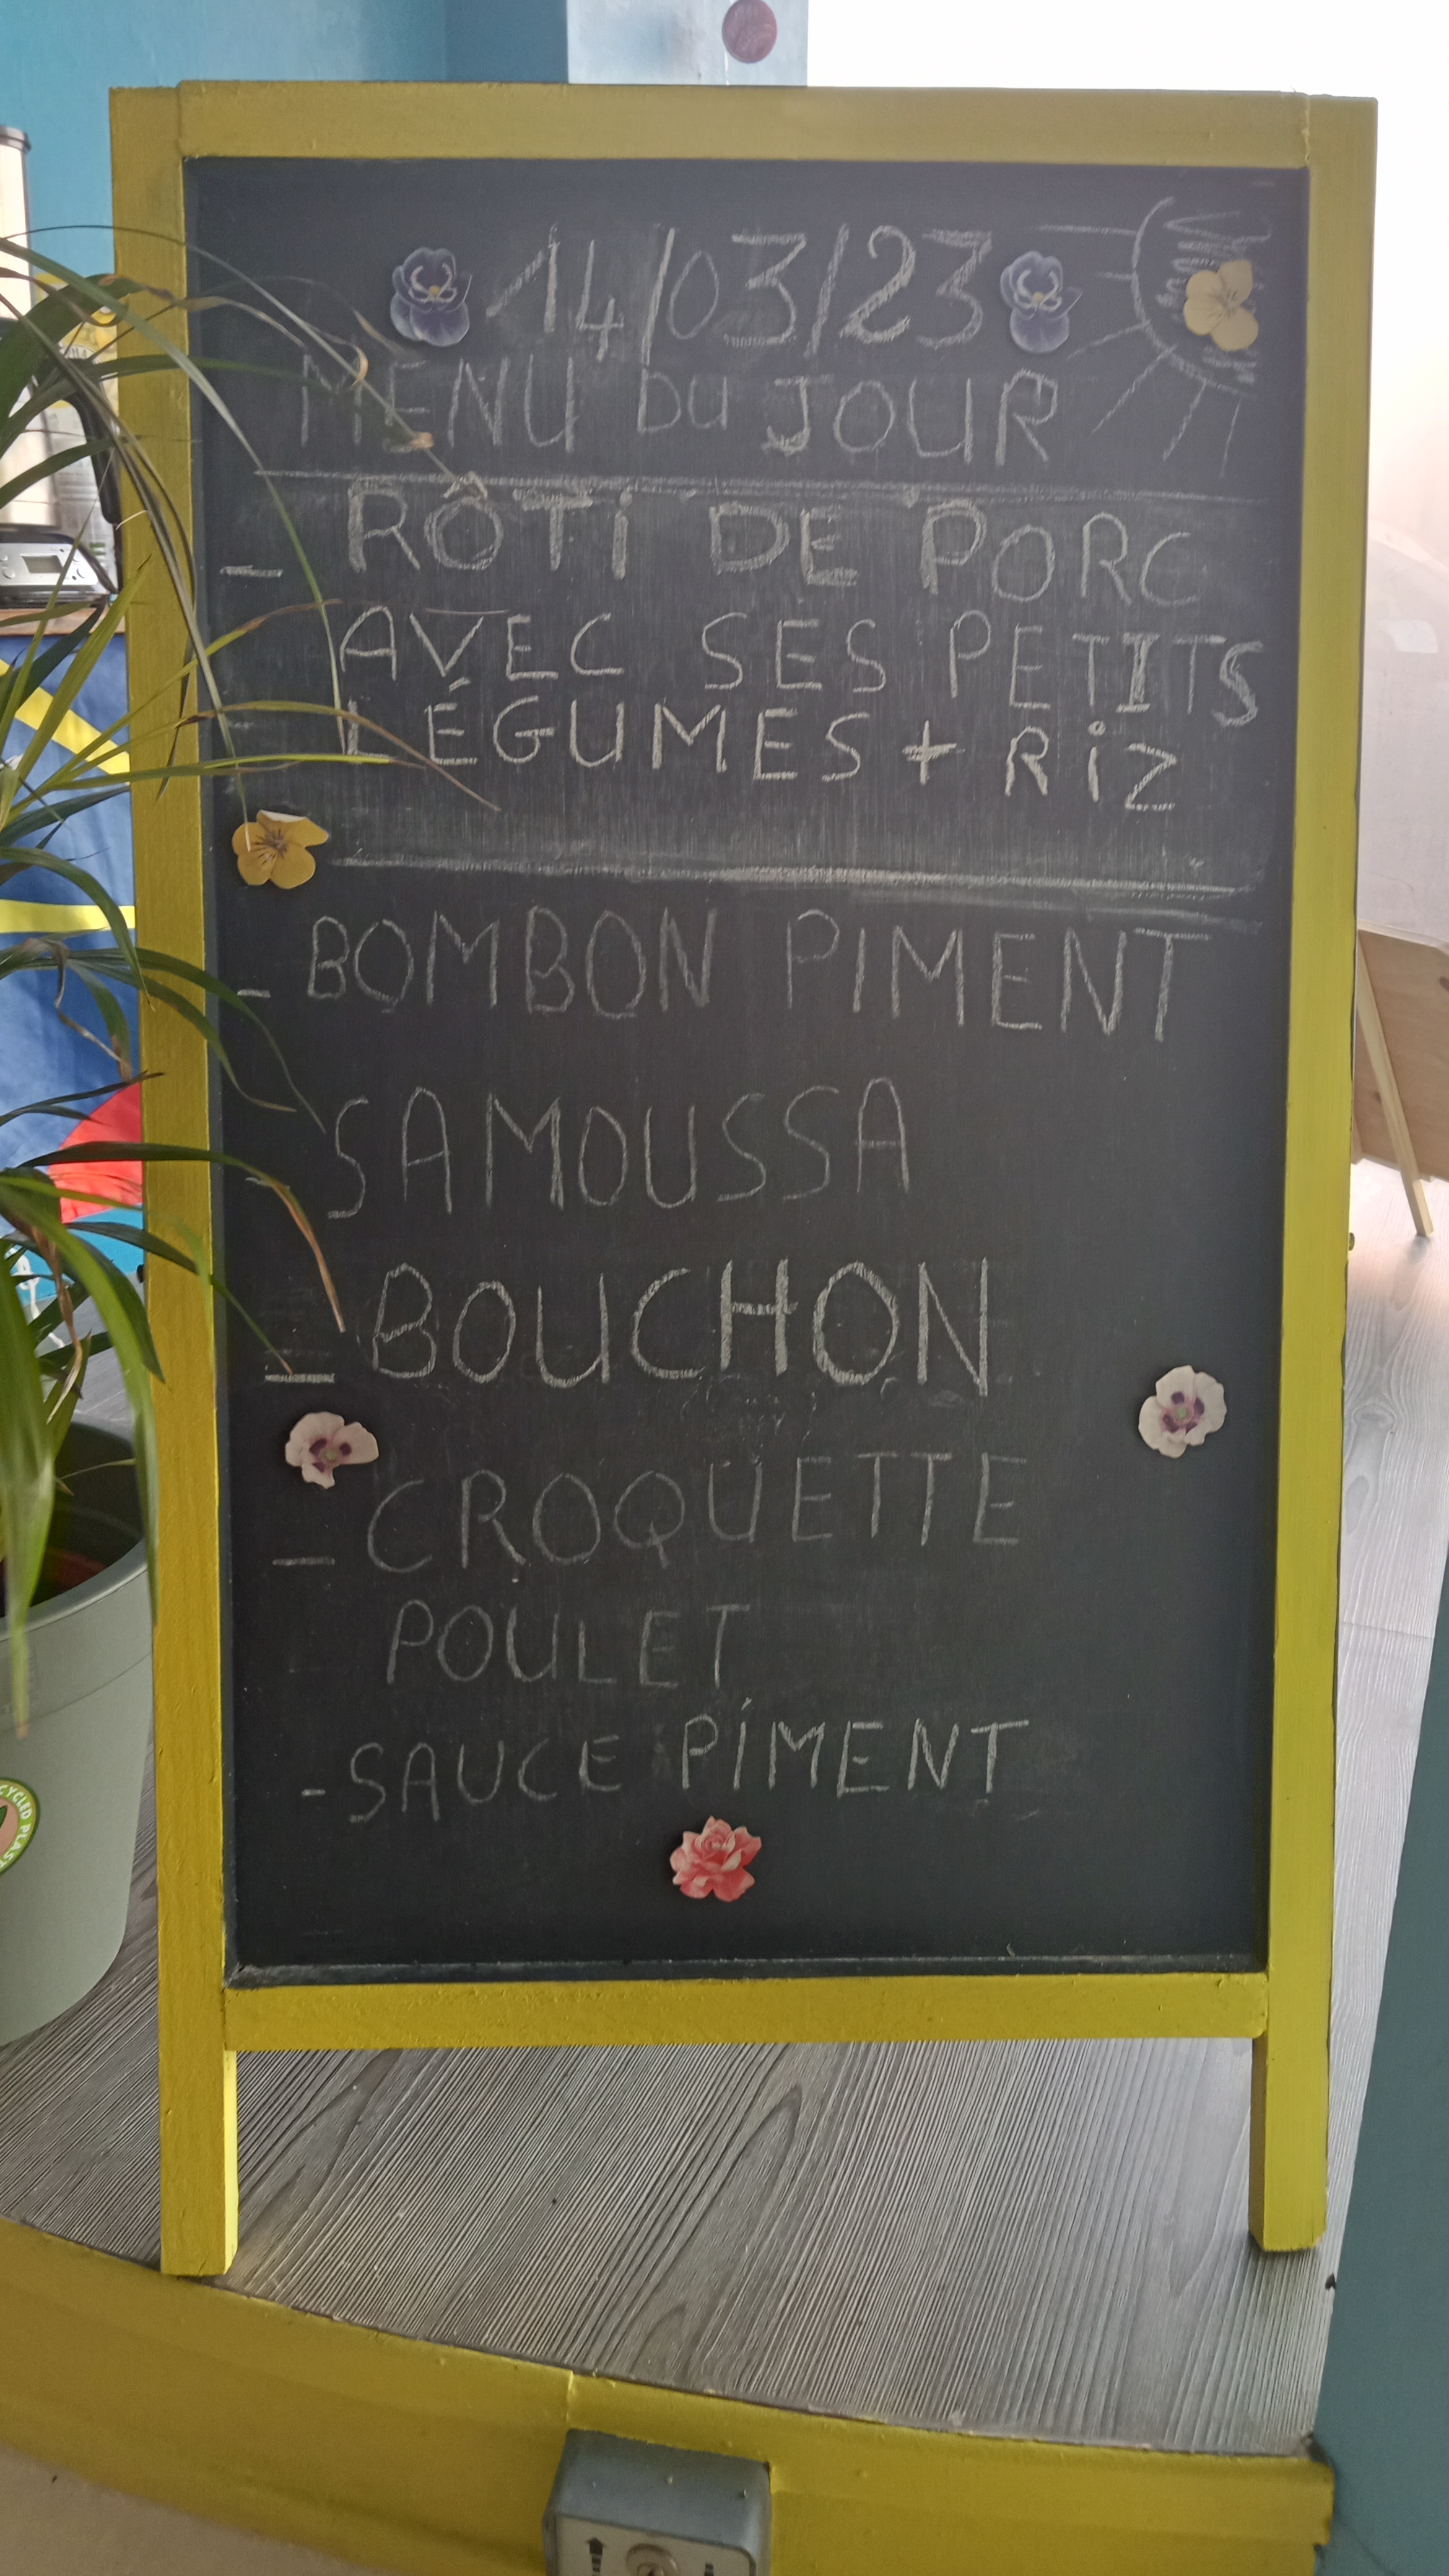 14/03/23
MENU DU JOUR
- RÔTi DE PORC
AVEC SES PETITS
LÉGUMES + RiZ
- BOMBON PIMENT
- SAMOUSSA
- BOUCHON
- CROQUETTE
POULET
- SAUCE PiMENT
CYCLED PLAST